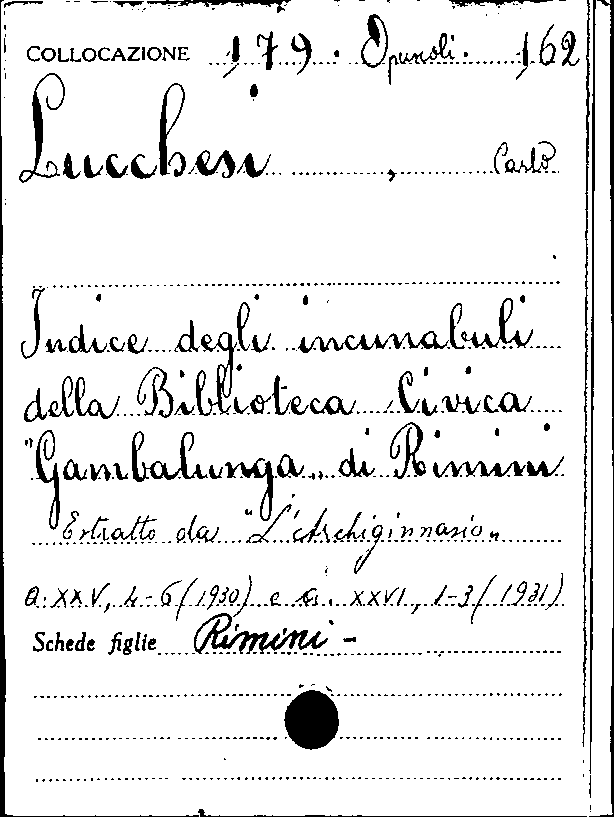 COLLOCAZIONE 179. Opuscoli. 162
Lucchesi , Carlo
Indice degli incunabuli
della Biblioteca Civica
"Gambalunga„ di Rimini
Estratto da "L'Archiginnasio„
a. XXV, 4-6 (1930) e a. XXVI, 1-3 (1931)
Schede figlie Rimini -